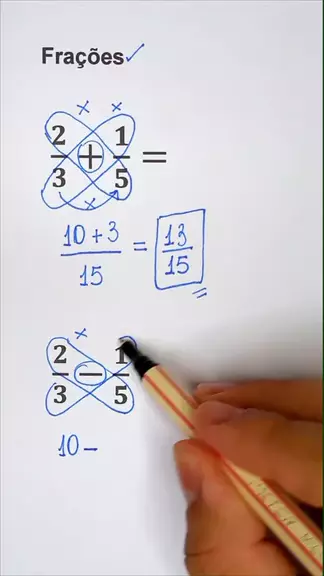 Frações ✓
x x
2/3 + 1/5 =
x
10 + 3 / 15 = 13/15
x
2/3 − 1/5
10 −